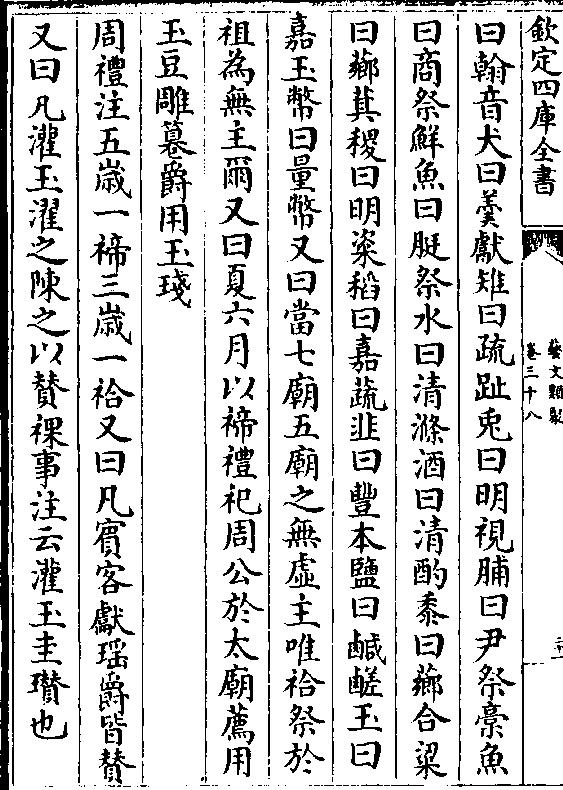 欽定四庫全書
藝文類聚
卷三十八
曰翰音犬曰羹獻雉曰疏趾兎曰明視脯曰尹祭槀魚
曰商祭鮮魚曰脡祭水曰清滌酒曰清酌黍曰薌合粱
曰薌萁稷曰明粢稻曰嘉蔬韭曰豐本鹽曰鹹鹺玉曰
嘉玉幣曰量幣又曰當七廟五廟之無虛主唯祫祭於
祖為無主爾又曰夏六月以禘禮祀周公於太廟薦用
玉豆雕篹爵用玉琖
周禮注五歳一禘三歳一祫又曰凡賓客獻瑶爵皆賛
又曰凡灌玉濯之陳之以賛祼事注云灌玉圭瓚也